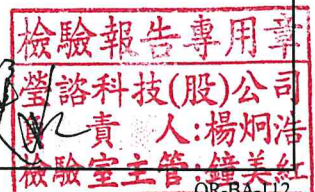 檢驗報告專用章
瑩諮科技(股)公司
責 人:楊炯浩
檢驗室主管:鐘美紅
QR-BA-T12